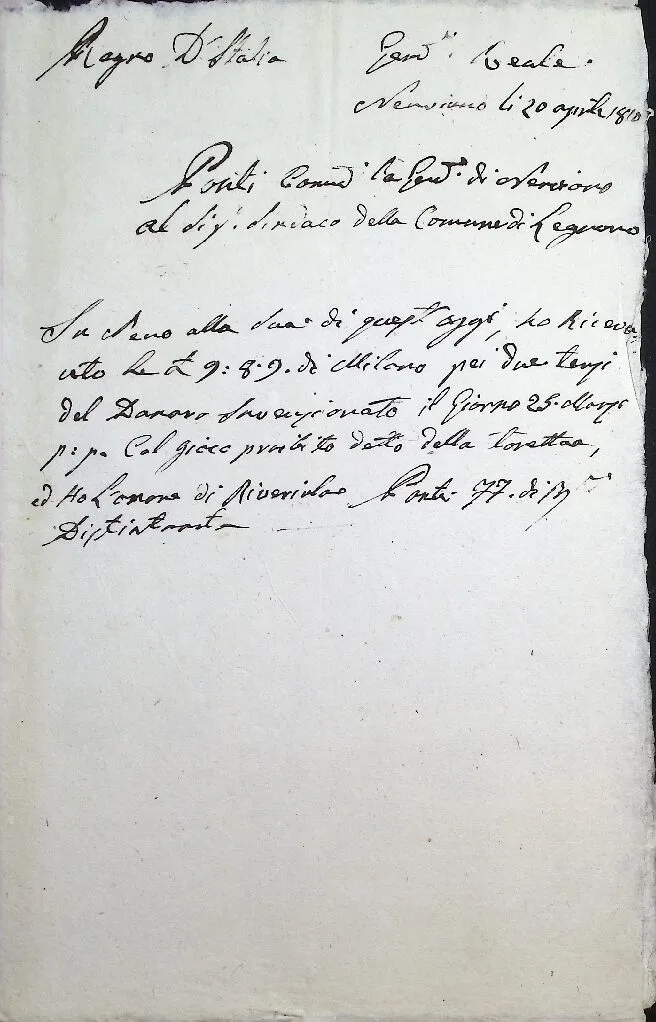 Regno D'Italia Gend.ia Reale.
Nerviano li 20 aprile 1810
Ponti Comd.te la Gend.a di Nerviano
al Sig. Sindaco della Comune di Legnano
In Seno alla Sua di quest'oggi, ho Riceu
uto le £ 9: 8. 9. di Milano pei due terzi
del Danaro Invenzionato il Giorno 25. Marzo
p: p. Col gioco proibito detto della Toretta,
ed Ho L'onore di Riverirla Ponti
Distintamente